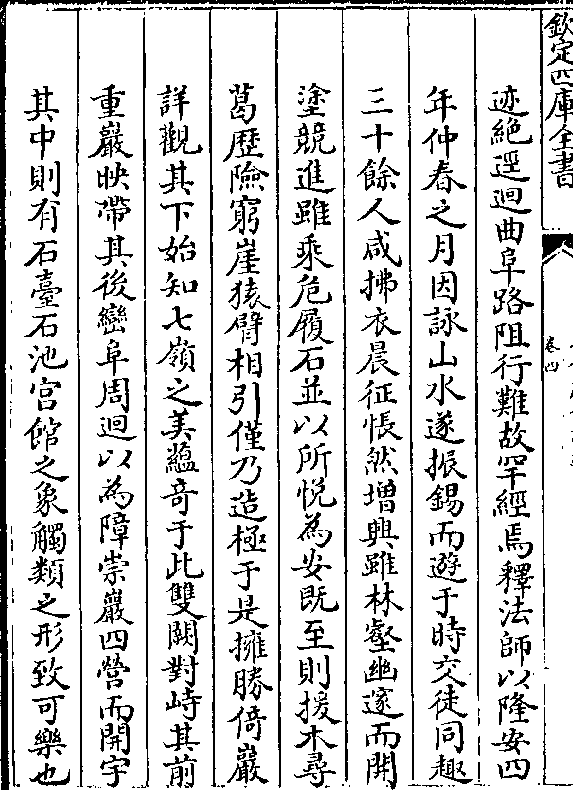 欽定四庫全書
卷四
迹絶逕迴曲阜路阻行難故罕經焉釋法師以隆安四
年仲春之月因詠山水遂振錫而遊于時交徒同趣
三十餘人咸拂衣晨征悵然増興雖林壑幽邃而開
塗競進雖乘危履石並以所悦為安既至則援木尋
葛歴險窮崖猿臂相引僅乃造極于是擁勝倚巖
詳觀其下始知七嶺之美蘊竒于此雙闕對峙其前
重巖映帶其後巒阜周迴以為障崇巖四營而開宇
其中則有石臺石池宫館之象觸類之形致可樂也